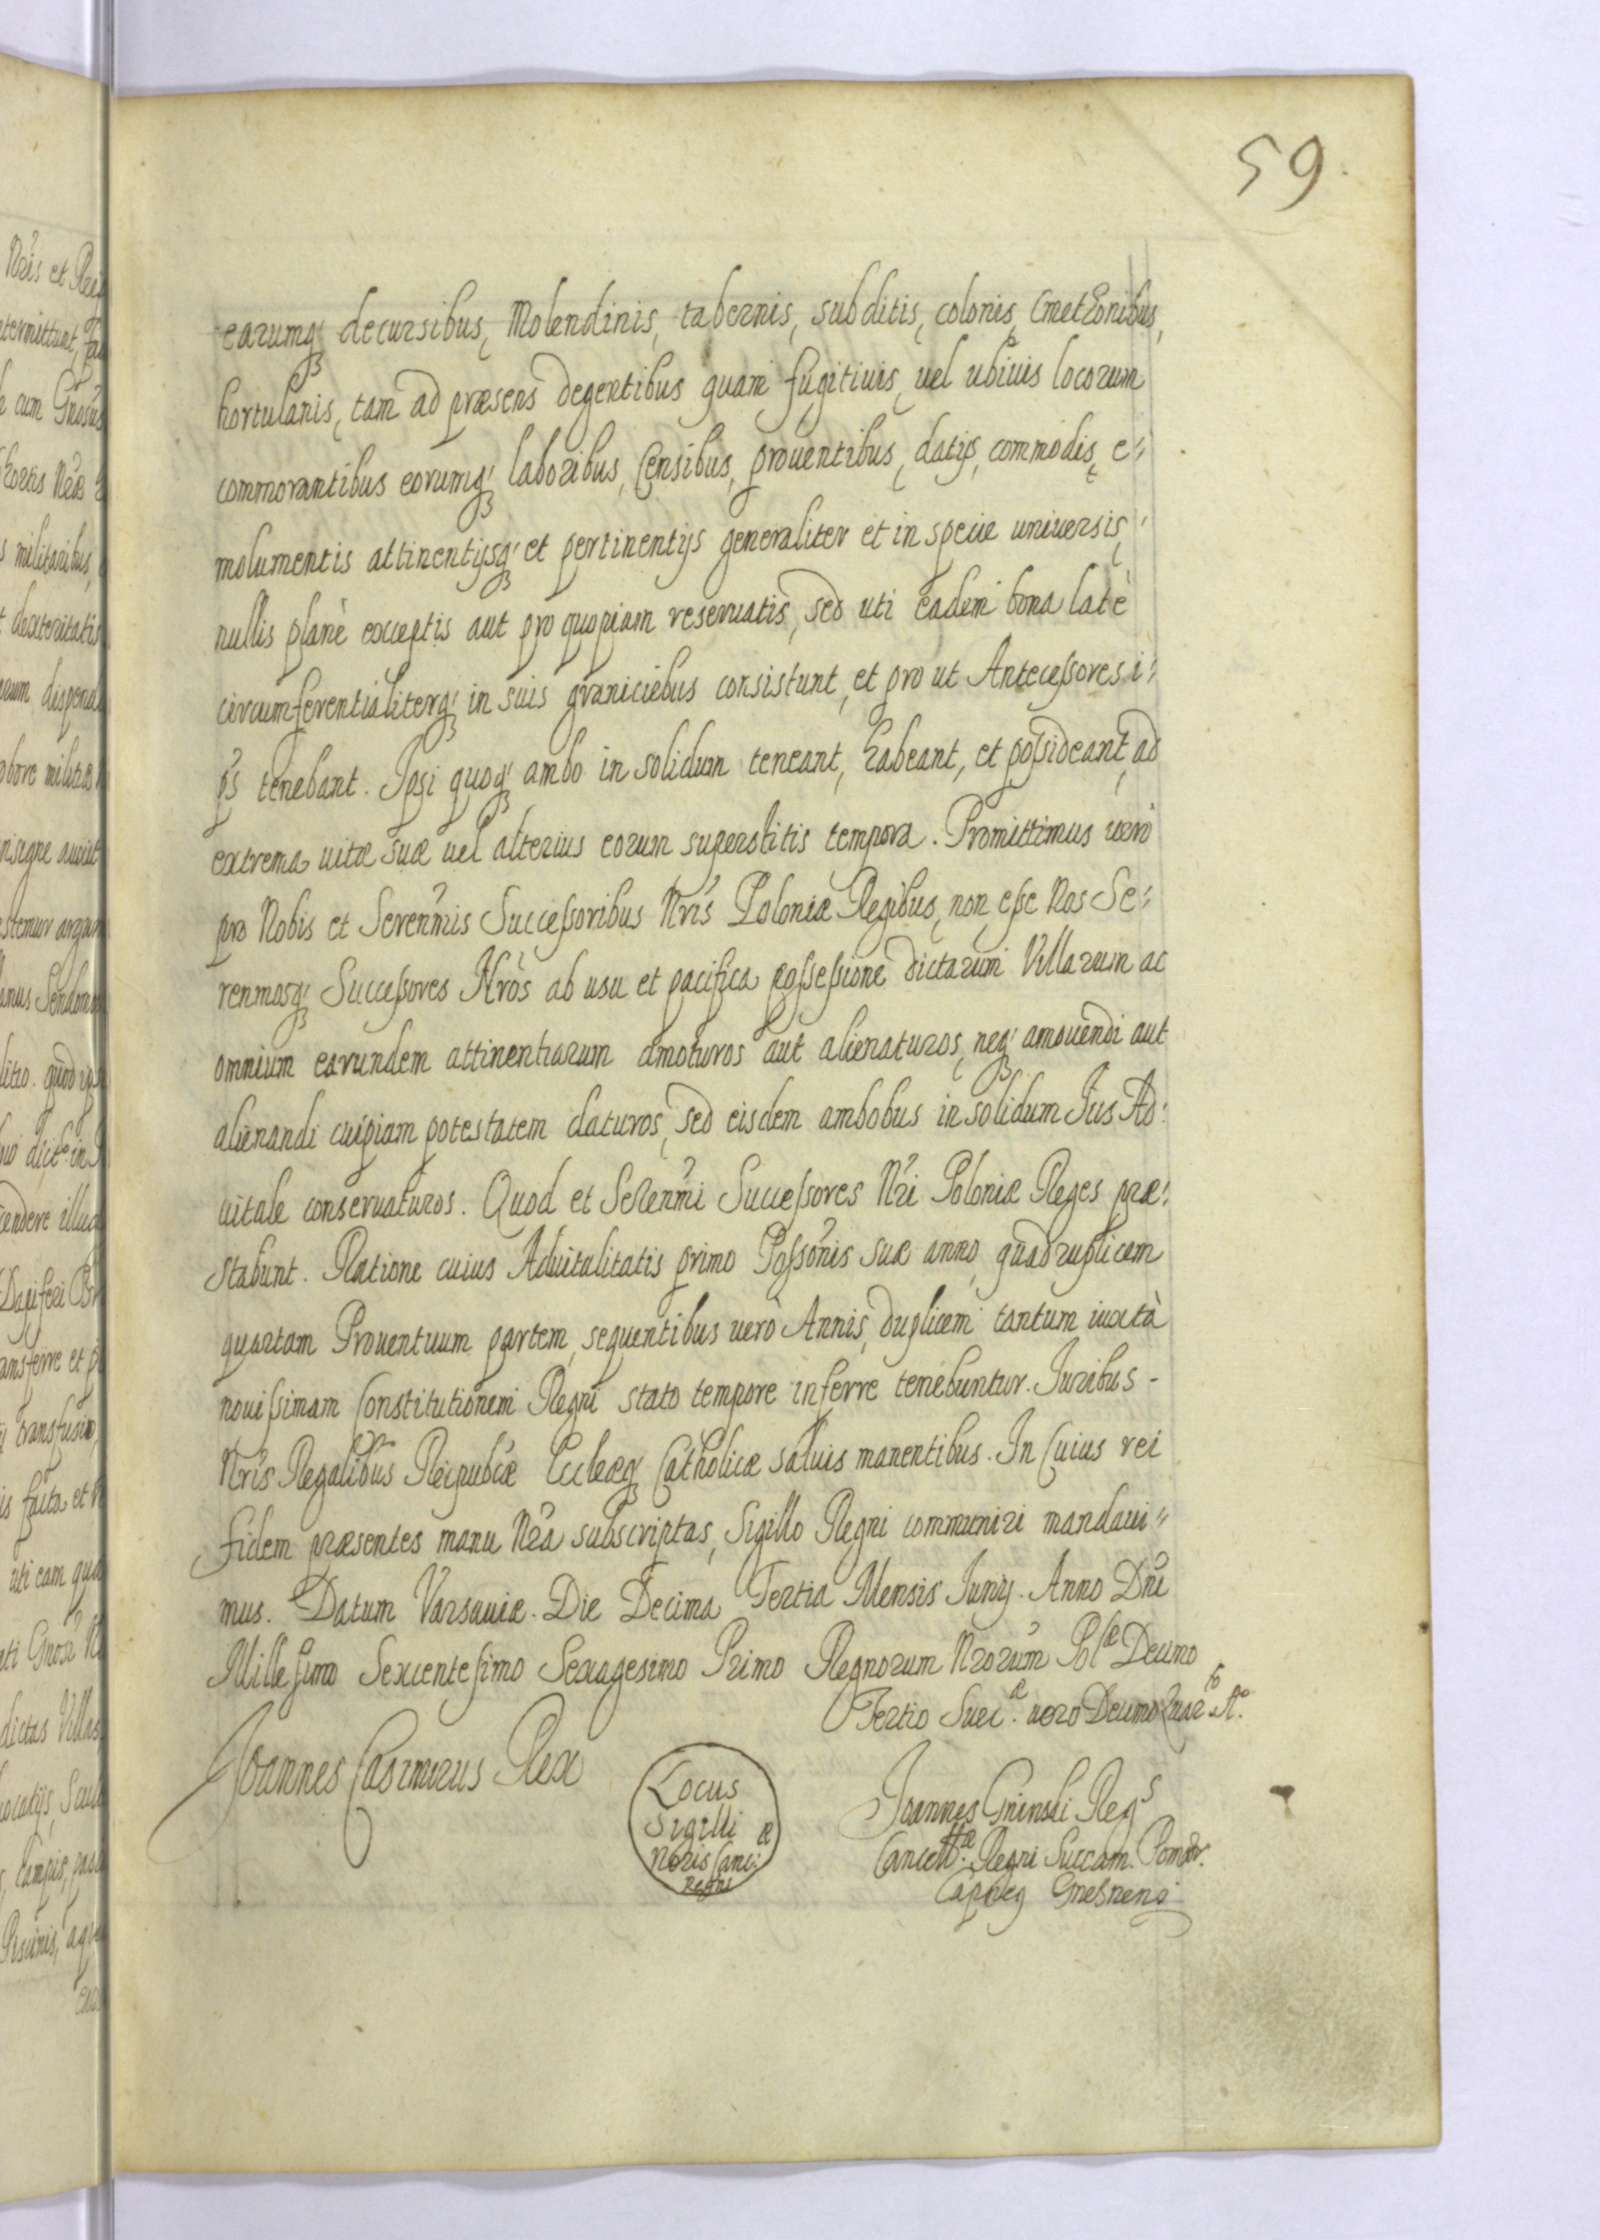 59.
earumq₃ decursibus, Molendinis, tabernis, subditis, colonis, Cmethonibus,
hortulanis, tam ad præsens degentibus quam fugitiuis, uel ubiuis locorum
commorantibus eorumq₃ laboribus, Censibus, prouentibus, datijs, commodis, e⸗
molumentis attinentijsq₃ et pertinentijs generaliter et in specie uniuersis,
nullis planè exceptis aut pro quopiam reseruatis, sed uti eadem bona latè
circumferentialiterq₃ in suis graniciebus consistunt, et pro ut Antecessores i⸗
ps̃ tenebant. Ipsi quoq₃ ambo in solidum teneant, habeant, et possideant, ad
extrema uitæ suæ uel alterius eorum superstitis tempora. Promittimus uero
pro Nobis et Serenm̃is Successoribus Nr̃is Poloniæ Regibus, non esse Nos Se⸗
renm̃osq₃ Successores Nr̃os ab usu et pacifica possessione dictarum Villarum ac
omnium earundem attinentiarum amoturos aut alienaturos, neq₃ amouendi aut
alienandi cuipiam potestatem daturos, sed eisdem ambobus in solidum Ius Ad⸗
uitale conseruaturos. Quod et Serenm̃i Successores Nr̃i Poloniæ Reges præ⸗
stabunt. Ratione cuius Aduitalitatis primo Possõnis suæ anno, quadruplicem
quartam Prouentuum partem, sequentibus uerò Annis, duplicem tantum iuxtà
nouissimam Constitutionem Regni stato tempore inferre tenebuntur. Iuribus -
Nr̃is Regalibus Reipubcæ Eccleæq₃ Catholicæ saluis manentibus. In Cuius rei
fidem præsentes manu Nr̃a subscriptas, Sigillo Regni communiri mandaui⸗
mus. Datum Varsauiæ. Die Decima Tertia Mensis Iunij. Anno Dñi
Millesimo Sexcentesimo Sexagesimo Primo Regnorum Nr̃orum Polæ Decimo
Tertio Sueciæ. uero Decimo Quarto Ao.
Joannes Casimirus Rex
Locus
Sigilli
Noris Canc: æ
Regni
Joannes Gninski Regs
Cancellæ. Regni Succam. Pomer.
Capneq Gnesnens